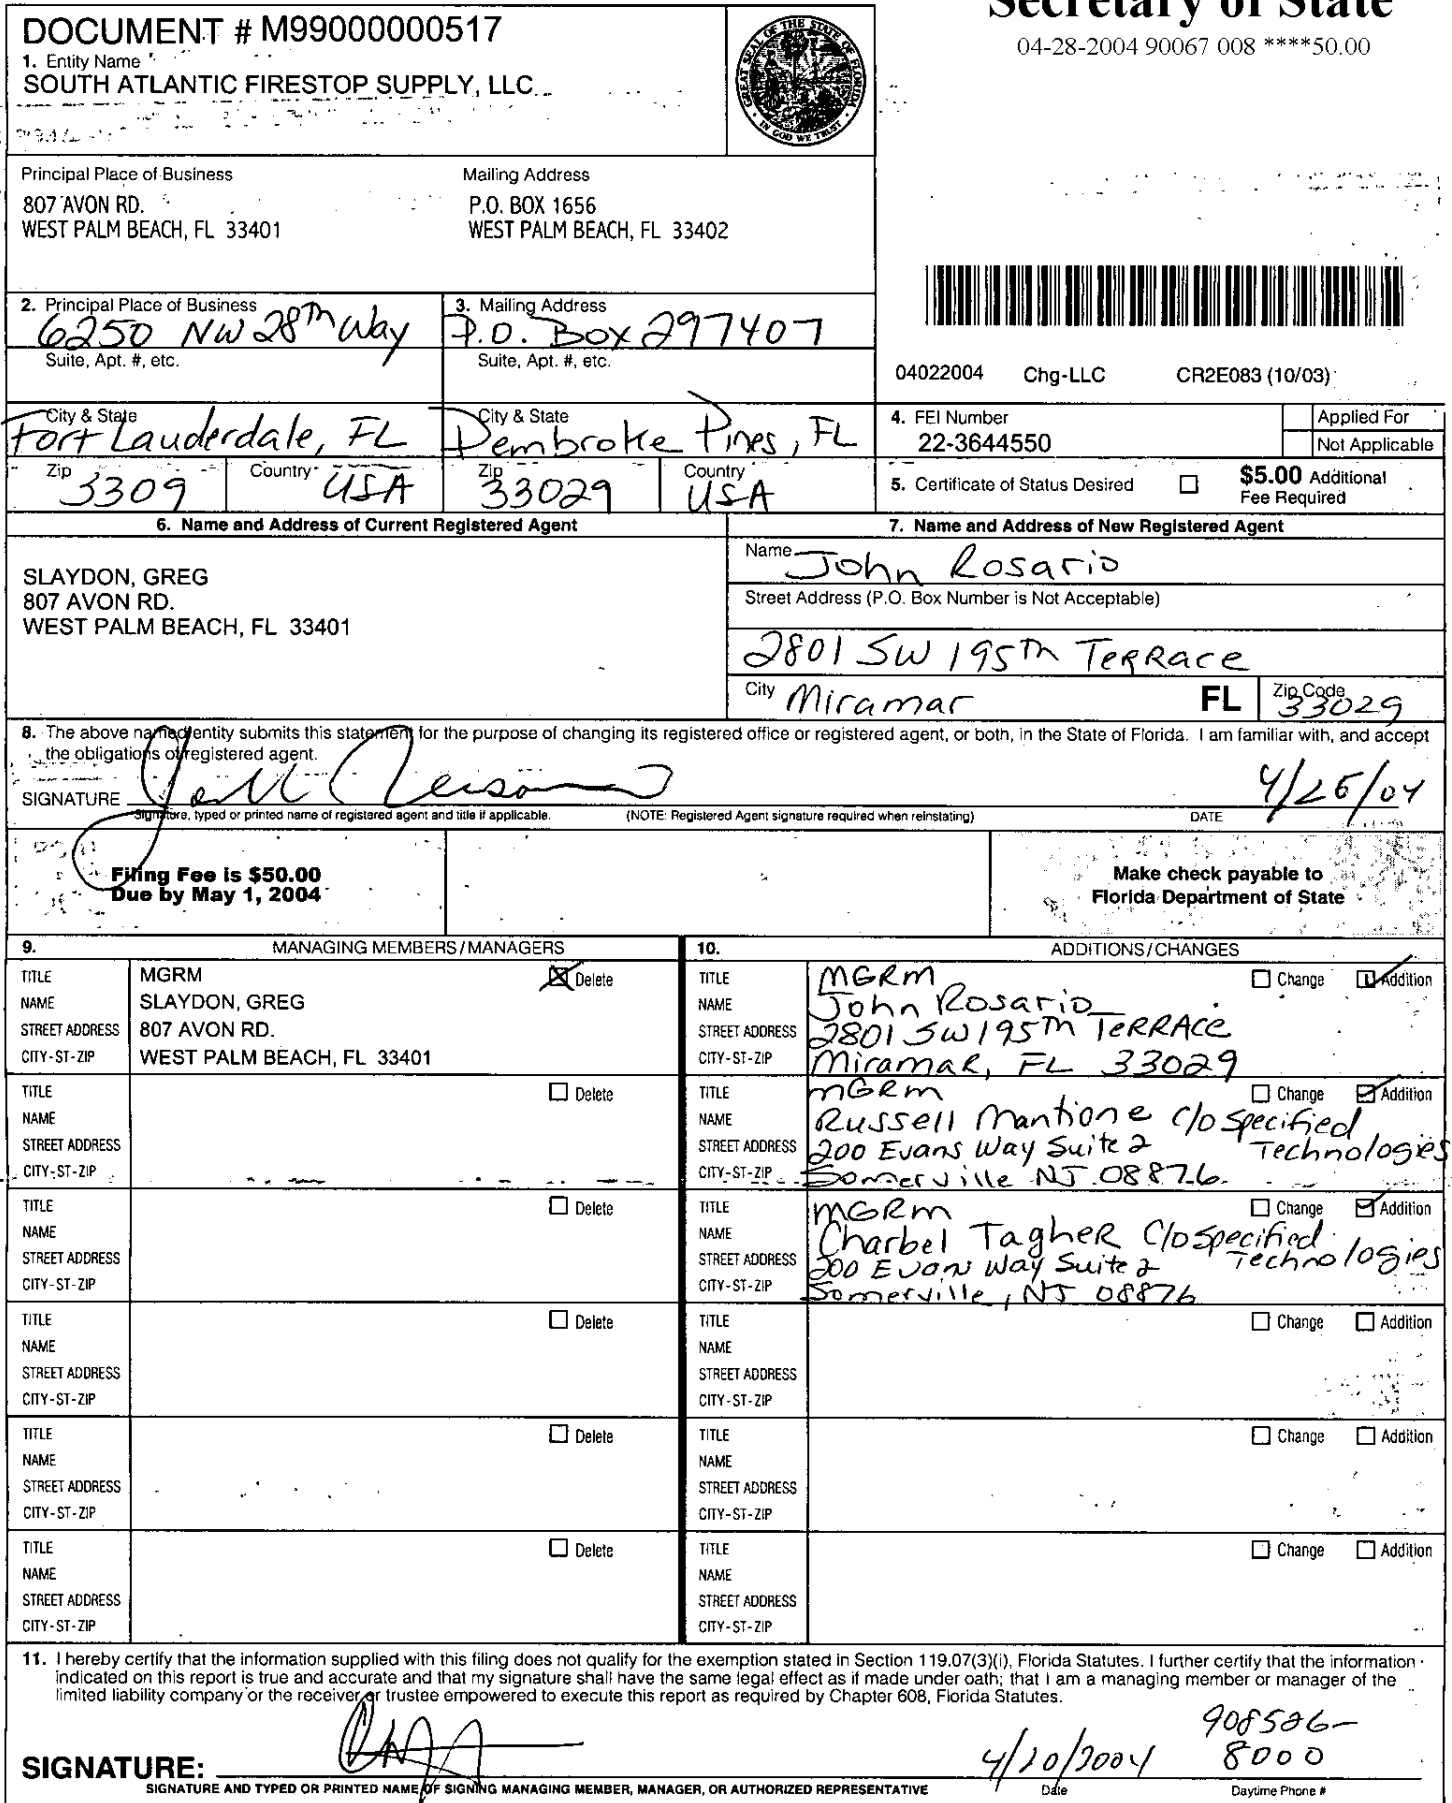 Secretary of State
04-28-2004 90067 008 ****50.00
DOCUMENT # M99000000517
1. Entity Name
SOUTH ATLANTIC FIRESTOP SUPPLY, LLC
GREAT SEAL OF THE STATE OF FLORIDA
IN GOD WE TRUST
Principal Place of Business
807 AVON RD.
WEST PALM BEACH, FL 33401
Mailing Address
P.O. BOX 1656
WEST PALM BEACH, FL 33402
2. Principal Place of Business
6250 NW 28th Way
Suite, Apt. #, etc.
3. Mailing Address
P.O. Box 297407
Suite, Apt. #, etc.
04022004 Chg-LLC CR2E083 (10/03)
City & State
Fort Lauderdale, FL
City & State
Pembroke Pines, FL
Zip
3309
Country
USA
Zip
33029
Country
USA
4. FEI Number
22-3644550
Applied For
Not Applicable
5. Certificate of Status Desired
$5.00 Additional
Fee Required
6. Name and Address of Current Registered Agent
SLAYDON, GREG
807 AVON RD.
WEST PALM BEACH, FL 33401
7. Name and Address of New Registered Agent
Name
John Rosario
Street Address (P.O. Box Number is Not Acceptable)
2801 SW 195th Terrace
City
Miramar
FL
Zip Code
33029
8. The above named entity submits this statement for the purpose of changing its registered office or registered agent, or both, in the State of Florida. I am familiar with, and accept
the obligations of registered agent.
SIGNATURE
Signature, typed or printed name of registered agent and title if applicable.
(NOTE: Registered Agent signature required when reinstating)
DATE
Filing Fee is $50.00
Due by May 1, 2004
Make check payable to
Florida Department of State
9. MANAGING MEMBERS/MANAGERS
TITLE MGRM Delete
NAME SLAYDON, GREG
STREET ADDRESS 807 AVON RD.
CITY-ST-ZIP WEST PALM BEACH, FL 33401
TITLE Delete
NAME
STREET ADDRESS
CITY-ST-ZIP
TITLE Delete
NAME
STREET ADDRESS
CITY-ST-ZIP
TITLE Delete
NAME
STREET ADDRESS
CITY-ST-ZIP
TITLE Delete
NAME
STREET ADDRESS
CITY-ST-ZIP
TITLE Delete
NAME
STREET ADDRESS
CITY-ST-ZIP
10. ADDITIONS/CHANGES
TITLE MGRM Change Addition
NAME John Rosario
STREET ADDRESS 2801 SW 195th TERRACE
CITY-ST-ZIP Miramar, FL 33029
TITLE MGRM Change Addition
NAME Russell Mantione C/O Specified
STREET ADDRESS 200 Evans Way Suite 2 Technologies
CITY-ST-ZIP Somerville NJ 08876
TITLE MGRM Change Addition
NAME Charbel Tagher C/O Specified
STREET ADDRESS 200 Evans Way Suite 2 Technologies
CITY-ST-ZIP Somerville, NJ 08876
TITLE Change Addition
NAME
STREET ADDRESS
CITY-ST-ZIP
TITLE Change Addition
NAME
STREET ADDRESS
CITY-ST-ZIP
TITLE Change Addition
NAME
STREET ADDRESS
CITY-ST-ZIP
11. I hereby certify that the information supplied with this filing does not qualify for the exemption stated in Section 119.07(3)(i), Florida Statutes. I further certify that the information
indicated on this report is true and accurate and that my signature shall have the same legal effect as if made under oath; that I am a managing member or manager of the
limited liability company or the receiver or trustee empowered to execute this report as required by Chapter 608, Florida Statutes.
SIGNATURE:
4/20/2004
908526-
8000
SIGNATURE AND TYPED OR PRINTED NAME OF SIGNING MANAGING MEMBER, MANAGER, OR AUTHORIZED REPRESENTATIVE
Date
Daytime Phone #